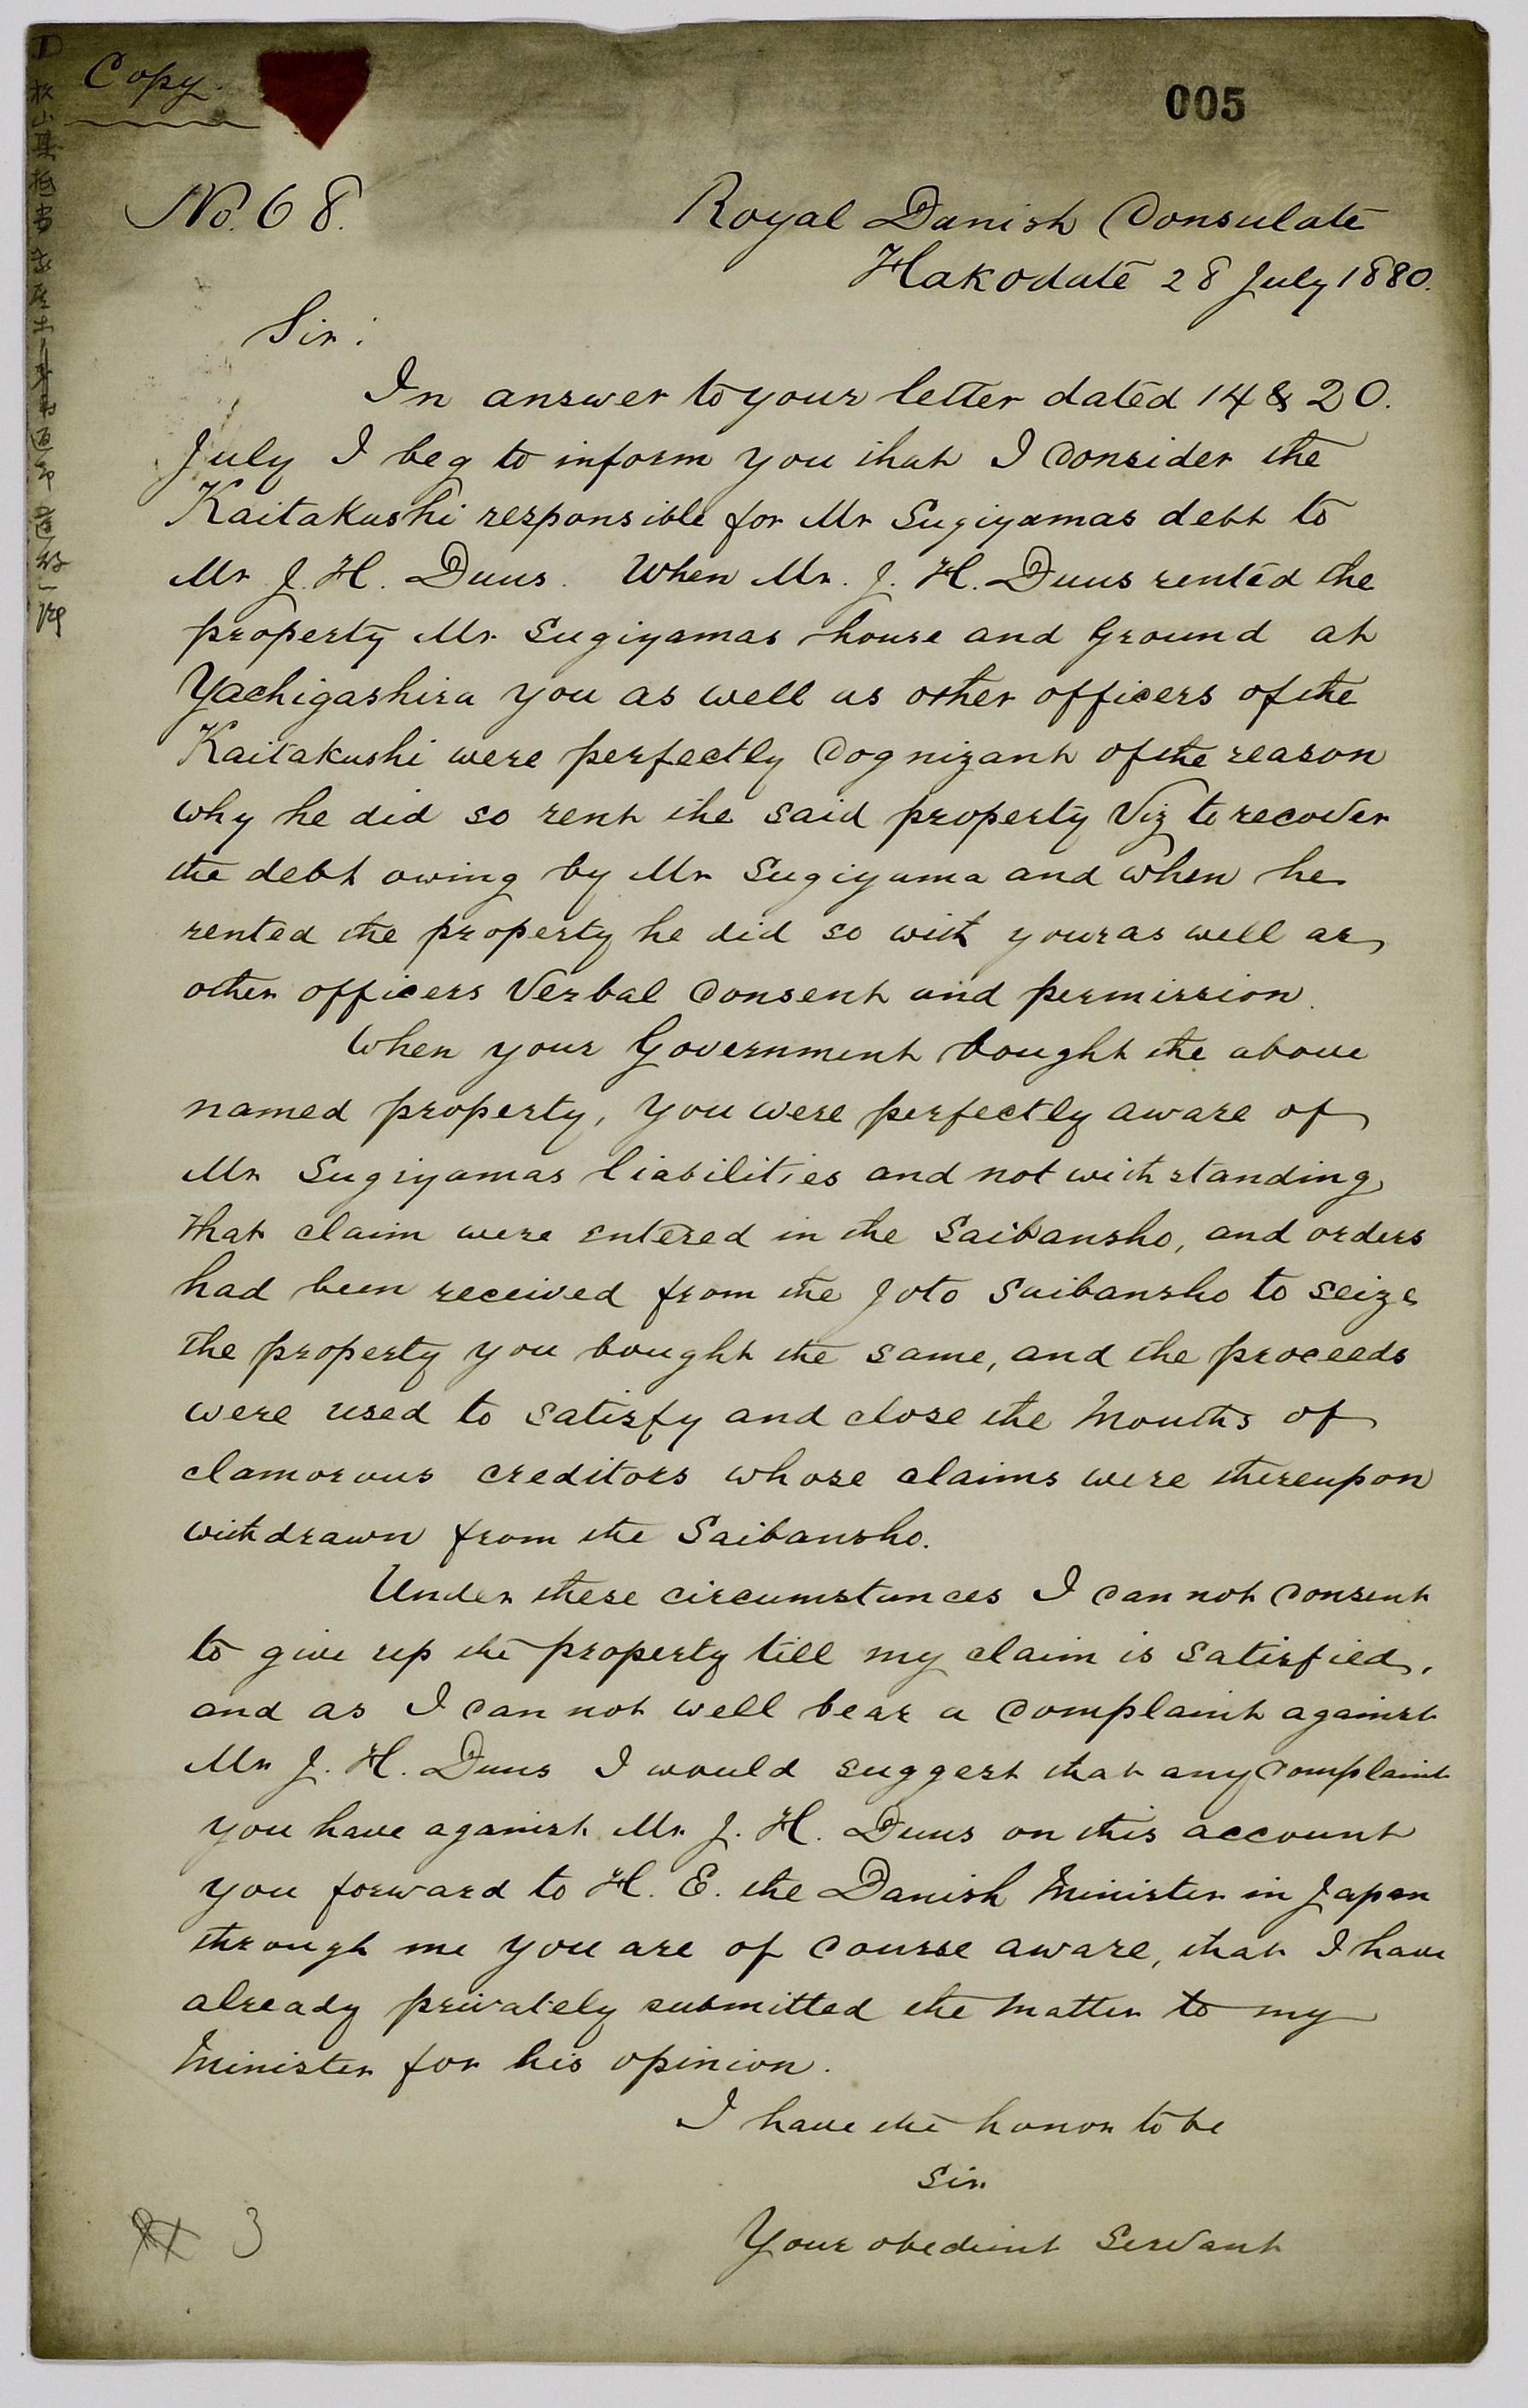 Copy.
005
No. 68.
Royal Danish Consulate
Hakodate 28 July 1880.
Sir:
In answer to your letter dated 14 & 20.
July I beg to inform you that I consider the
Kaitakushi responsible for Mr Sugiyamas debt to
Mr J. H. Duus. When Mr. J. H. Duus rented the
property Mr Sugiyamas house and Ground at
Yachigashira you as well as other officers of the
Kaitakushi were perfectly cognizant of the reason
why he did so rent the said property Viz to recover
the debt owing by Mr Sugiyama and when he
rented the property he did so with your as well as
other officers Verbal consent and permission.
When your Government bought the above
named property, you were perfectly aware of
Mr Sugiyamas liabilities and not with standing
that claim were entered in the Saibansho, and orders
had been received from the Joto Saibansho to seize
the property you bought the same, and the proceeds
were used to satisfy and close the mouths of
clamorous creditors whose claims were thereupon
withdrawn from the Saibansho.
Under these circumstances I can not consent
to give up the property till my claim is satisfied,
and as I can not well bear a complaint against
Mr J. H. Duus I would suggest that any complaint
you have against Mr. J. H. Duus on this account
you forward to H. E. the Danish Minister in Japan
through me you are of course aware, that I have
already privately submitted the matter to my
Minister for his opinion.
I have the honor to be
Sir
Your obedient Servant
3